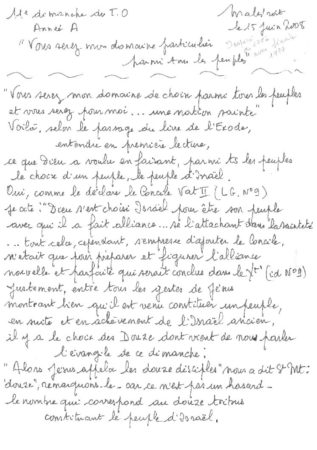 11e dimanche du T.O
Année A
Malestroit
le 15 juin 2008
"Vous serez mon domaine particulier
parmi tous les peuples"
"Vous serez mon domaine de choix parmi tous les peuples
et vous serez pour moi... une nation sainte"
Voilà, selon le passage du livre de l'Exode,
entendu en première lecture,
ce que Dieu a voulu en faisant, parmi ts les peuples
le choix d'un peuple, le peuple d'Israël.
Oui, comme le déclare le Concile Vat II (LG, N°9)
je cite: "Dieu s'est choisi Israël pour être son peuple
avec qui il a fait alliance... se l'attachant dans la sainteté
... tout cela, cependant, s'empresse d'ajouter le Concile,
n'était que pour préparer et figurer l'alliance
nouvelle et parfaite qui serait conclue dans le Xt" (id N°9)
Justement, entre tous les gestes de Jésus
montrant bien qu'il est venu constituer un peuple,
en suite et en achèvement de l'Israël ancien,
il y a le choix des Douze dont vient de nous parler
l'évangile de ce dimanche;
"Alors Jésus appela les douze disciples" nous a dit St Mt:
"douze", remarquons-le - car ce n'est pas un hasard -
le nombre qui correspond au douze tribus
constituant le peuple d'Israël.